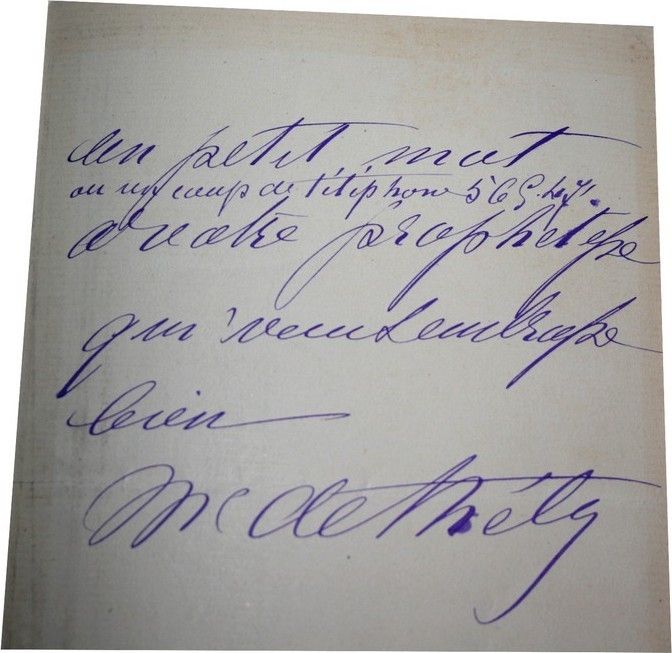 un petit mot
ou un coup de téléphone 569.47.
à votre prophétesse
qui vous embrasse
bien
Me de Thèly